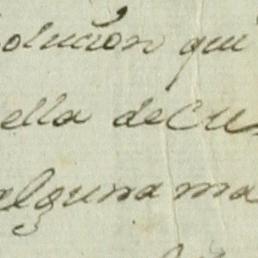 olución qu
ella de Cu
alguna ma